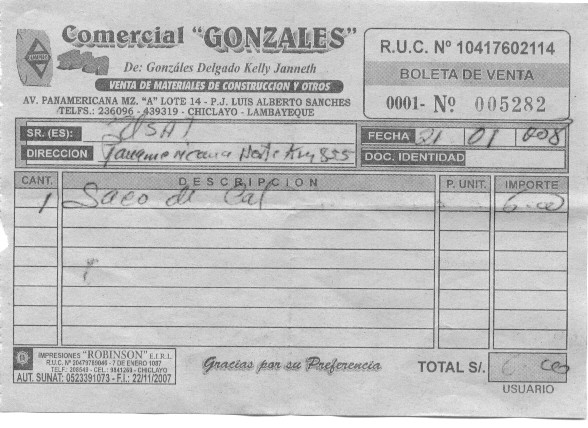 Comercial "GONZALES"
De: Gonzáles Delgado Kelly Janneth
VENTA DE MATERIALES DE CONSTRUCCION Y OTROS
AV. PANAMERICANA MZ. "A" LOTE 14 - P.J. LUIS ALBERTO SANCHES
/TELFS.: 236096 - 439319 - CHICLAYO - LAMBAYEQUE
R.U.C. Nº 10417602114
BOLETA DE VENTA
0001- Nº 005282
SR. (ES): USAT
DIRECCION Panamericana Norte Km 855
FECHA 21 01 008
DOC. IDENTIDAD
CANT. DESCRIPCION P. UNIT. IMPORTE
1 Saco de Cal 6.00
IMPRESIONES "ROBINSON" E.I.R.L.
R.U.C. Nº 20479785046 - 7 DE ENERO 1087
TELF.: 208549 - CEL.: 9841269 - CHICLAYO
AUT. SUNAT: 0523391073 - F.I.: 22/11/2007
Gracias por su Preferencia
TOTAL S/. 6.00
USUARIO